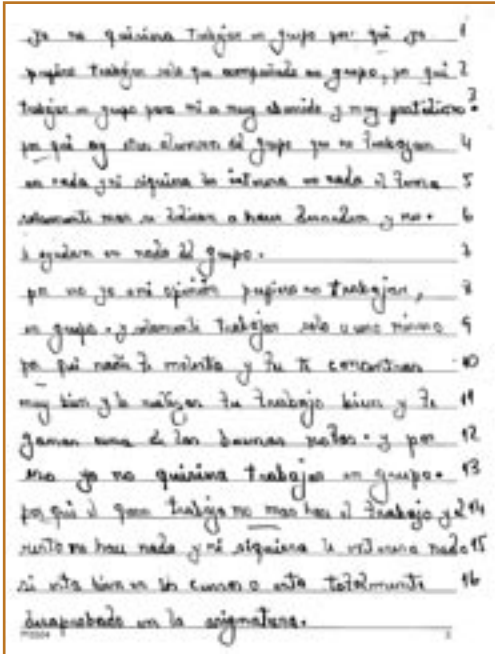 yo no quisiera Trabajar en grupo por qui yo 1
prefiero trabajar solo que acompañado en grupo, por qui 2
trabajar en grupo para mi es muy aburrido y muy 3
por qui ay otros alumnos del grupo que no Trabajan 4
en nada y ni siquiera les interesa en nada el Tema 5
solamente mas se dedican a hacer y no 6
ayudan en nada del grupo. 7
por eso yo en mi opinión prefiero no trabajar, 8
en grupo. y solamente Trabajar solo o uno mismo 9
por qui nadie Te molesta y Tu te concentras 10
muy bien y lo realizas Tu Trabajo bien y Te 11
ganas una de las buenas notas. y por 12
eso yo no quisiera trabajar en grupo. 13
por qui el trabajo no mas hace el Trabajo y el 14
resto no hace nada y ni siquiera le interesa nada 15
si esta bien en los cursos o esta totalmente 16
desaprobado en la asignatura.